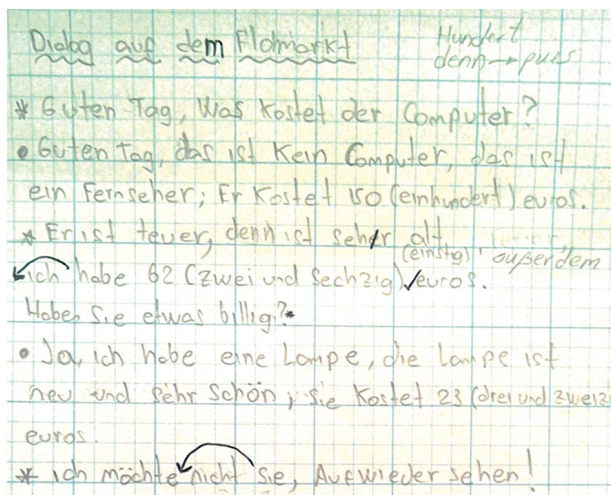 Dialog auf dem Flohmarkt
Hundert
denn → pues
* Guten Tag, Was Kostet der Computer?
• Guten Tag, das ist Kein Computer, das ist
ein Fernseher; Er Kostet 150 (einhundert) euros.
* Er ist teuer, denn ist sehr alt
(einstig) außerdem
ich habe 62 (zwei und sechzig) euros.
Haben Sie etwas billig?
• Ja, ich habe eine Lampe, die Lampe ist
neu und sehr schön; sie Kostet 23 (drei und zweiz
euros.
* ich möchte nicht sie, Aufwieder sehen!